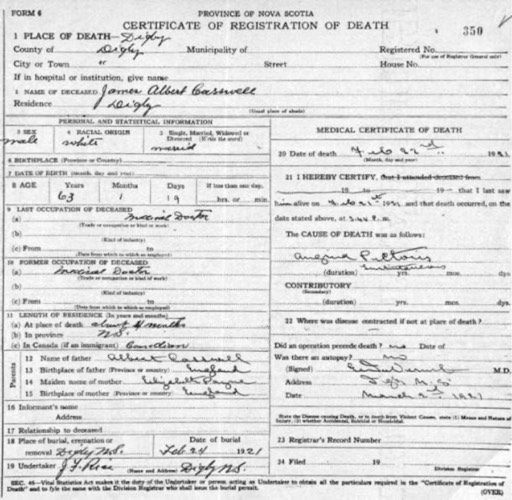 FORM 6
PROVINCE OF NOVA SCOTIA
CERTIFICATE OF REGISTRATION OF DEATH
350
1 PLACE OF DEATH—Digby
County of Digby Municipality of
Registered No.
(For use of Registrar General only)
City or Town " Street House No.
If in hospital or institution, give name
2 NAME OF DECEASED James Albert Casswell
Residence Digby
(Usual place of abode)
PERSONAL AND STATISTICAL INFORMATION
3 SEX
male
4 RACIAL ORIGIN
white
5 Single, Married, Widowed or Divorced (Write the word)
married
6 BIRTHPLACE (Province or Country)
7 DATE OF BIRTH (month, day and year)
8 AGE Years Months Days If less than one day,
63 1 19 hrs. or min.
9 LAST OCCUPATION OF DECEASED
(a) Medical Doctor
(Trade or occupation or kind of work)
(b)
(Kind of industry)
(c) From to
(Dates from which to which so employed)
10 FORMER OCCUPATION OF DECEASED
(a) Medical Doctor
(Trade or occupation or kind of work)
(b)
(Kind of industry)
(c) From to
(Dates from which to which so employed)
11 LENGTH OF RESIDENCE (In years and months)
(a) At place of death about 4 months
(b) In province N.S.
(c) In Canada (if an immigrant) Canadian
Parents
12 Name of father Albert Casswell
13 Birthplace of father (Province or country) England
14 Maiden name of mother Elizabeth Payne
15 Birthplace of mother (Province or country) England
16 Informant
Address
17 Relationship to deceased
18 Place of burial, cremation or removal Digby N.S.
Date of burial Feb 24 1921
19 Undertaker J. F. Rice (Name and Address) Digby N.S.
MEDICAL CERTIFICATE OF DEATH
20 Date of death Feb 22nd 1921
(Month, day and year)
21 I HEREBY CERTIFY, that I attended deceased from
19 to 19 that I last saw
him alive on Feb 1921 and that death occurred, on the
date stated above, at P.m.
The CAUSE OF DEATH was as follows:
Angina Pectoris
(duration) yrs. mos. dys.
CONTRIBUTORY
(Secondary)
(duration) yrs. mos. dys.
22 Where was disease contracted if not at place of death?
Did an operation precede death? no Date of
Was there an autopsy? no
(Signed) M.D.
Address N.S.
Date March 1921
State the Disease Causing Death, or in death from Violent Causes, state (1) Means and Nature of Injury, (2) Whether Accidental, Suicidal or Homicidal.
23 Registrar's Record Number
24 Filed 19
Division Registrar
SEC. 45—Vital Statistics Act makes it the duty of the Undertaker or person acting as Undertaker to obtain all the particulars required in the "Certificate of Registration of Death" and to file the same with the Division Registrar who shall issue the burial permit.
(OVER)